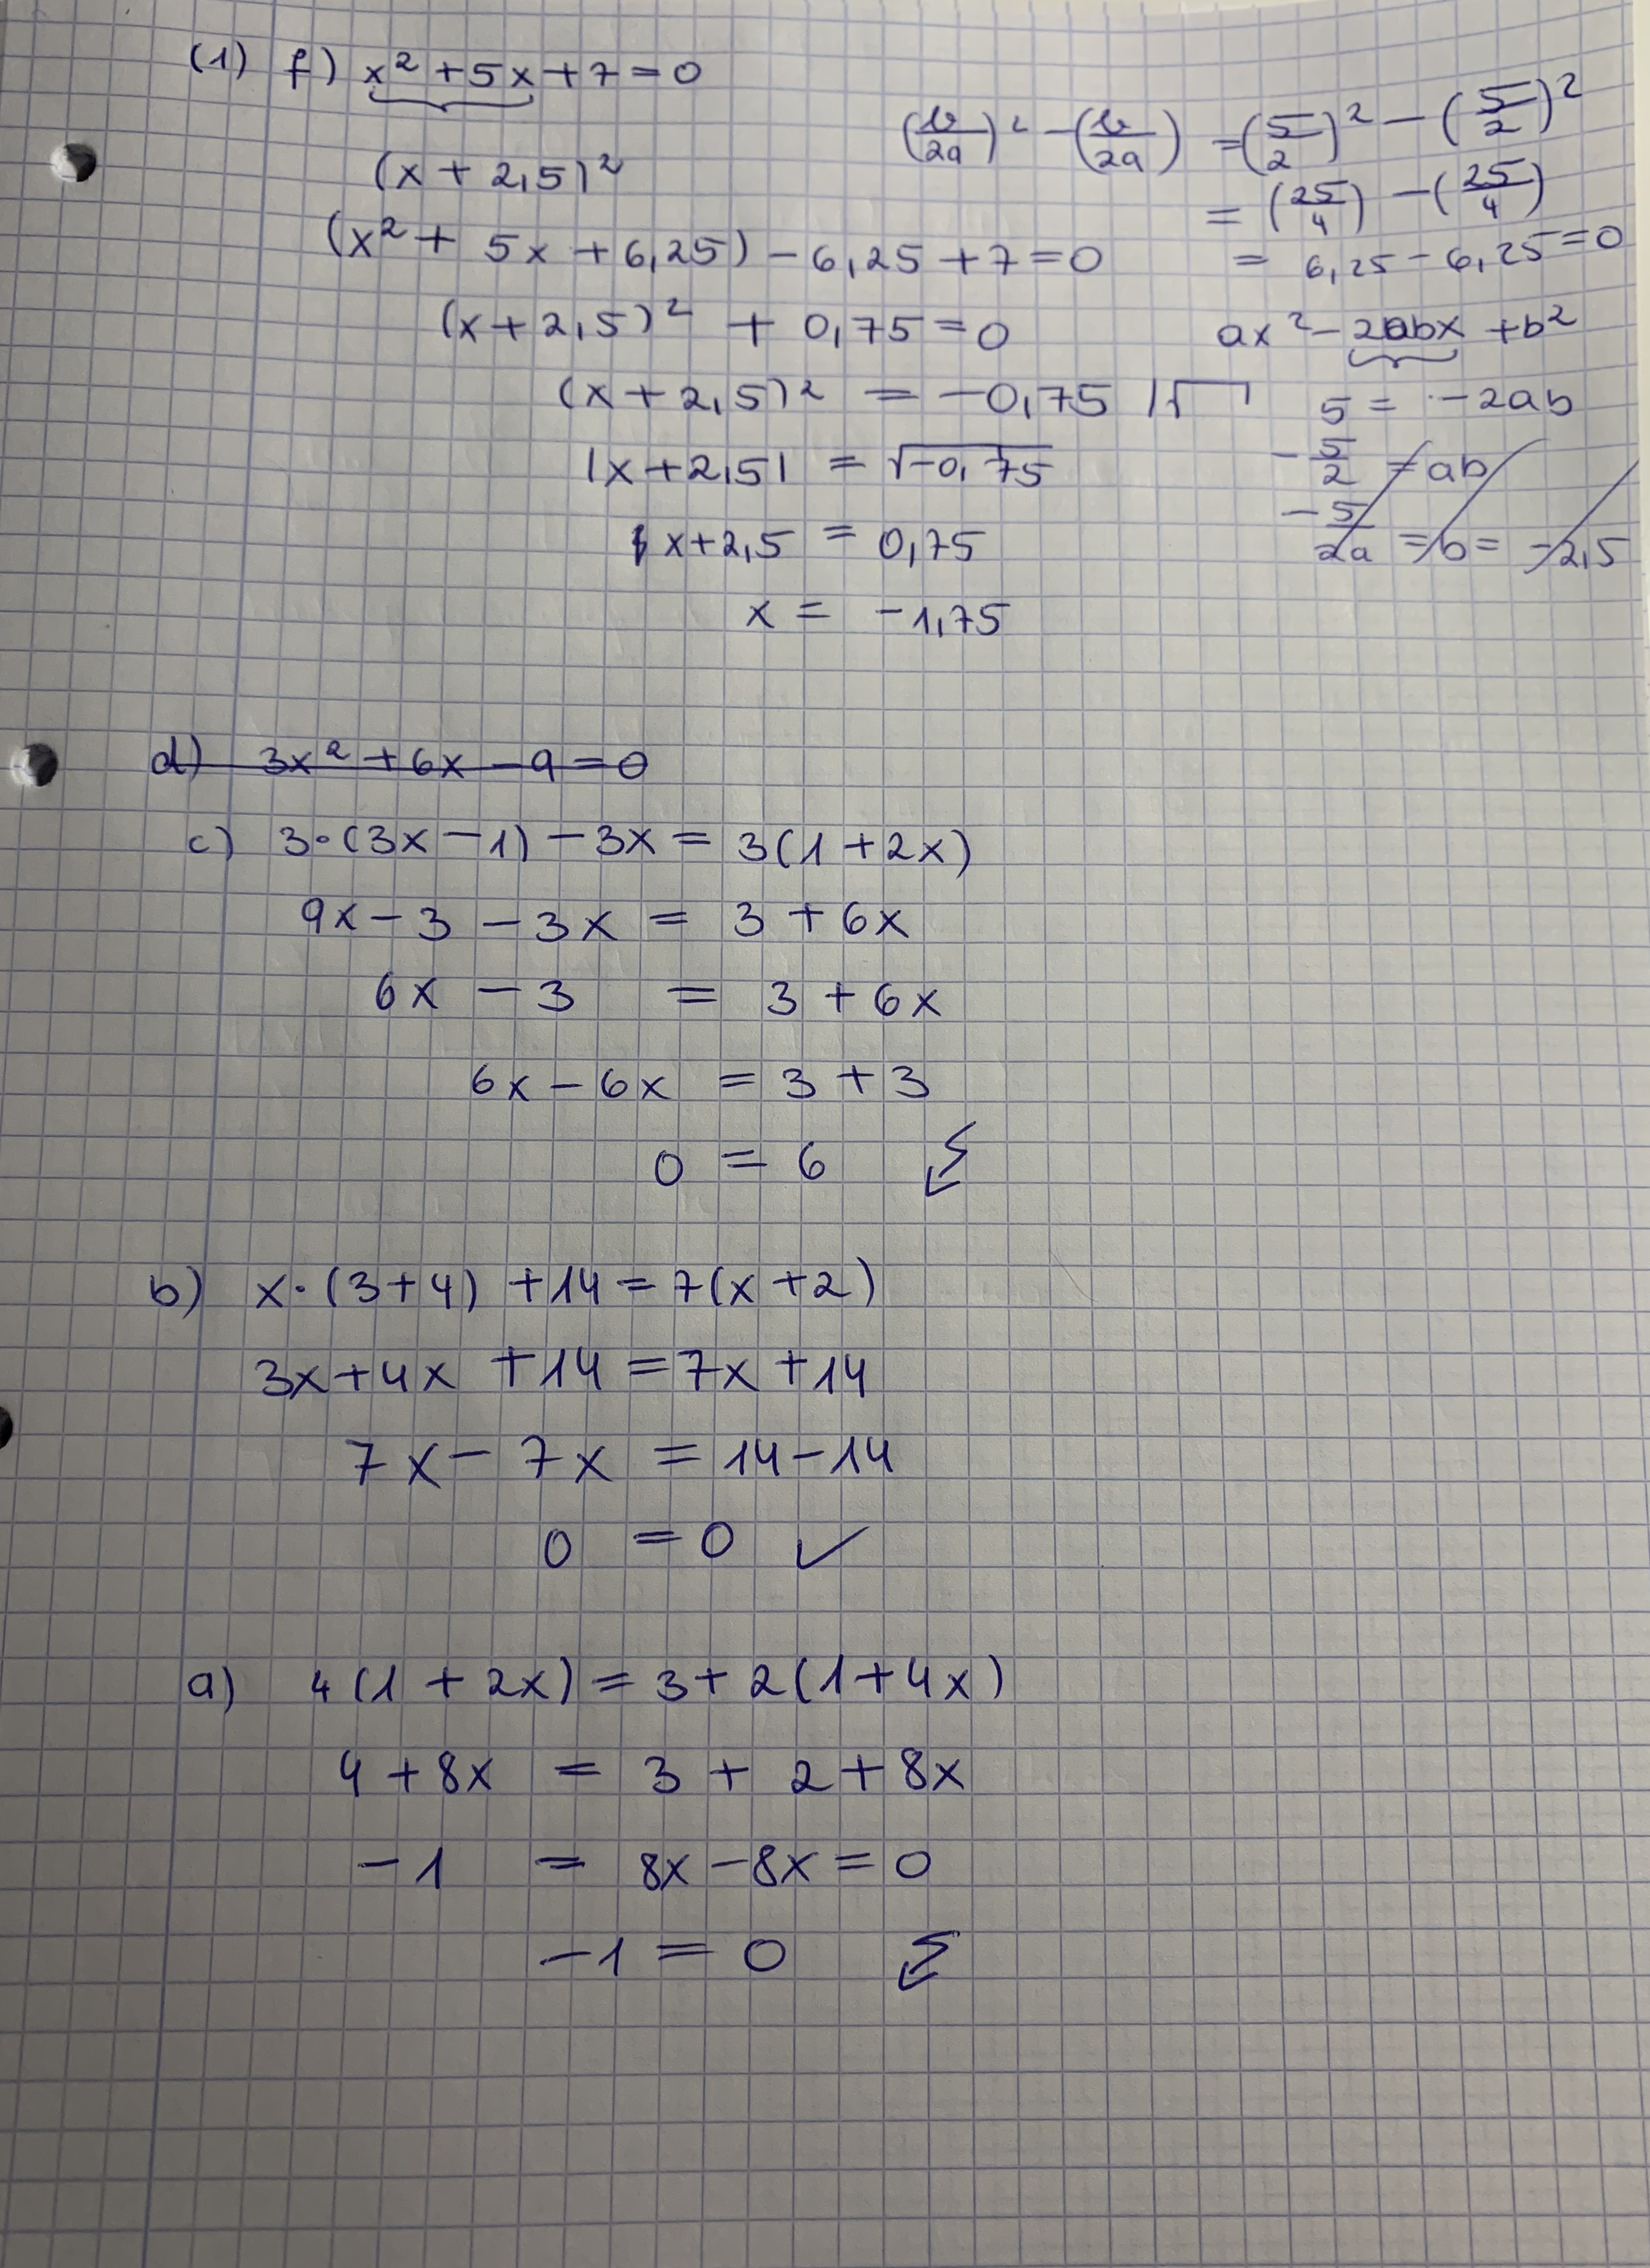 (1) f) x² + 5x + 7 = 0
(x + 2,5)²
(x² + 5x + 6,25) - 6,25 + 7 = 0
(x + 2,5)² + 0,75 = 0
(x + 2,5)² = -0,75 |√
|x + 2,5| = √-0,75
x + 2,5 = 0,75
x = -1,75
(b/2a)² - (b/2a) = (5/2)² - (5/2)²
= (25/4) - (25/4)
= 6,25 - 6,25 = 0
ax² - 2abx + b²
5 = -2ab
-5/2 = ab
-5/2a = b = -2,5
d) 3x² + 6x - 9 = 0
c) 3·(3x - 1) - 3x = 3(1 + 2x)
9x - 3 - 3x = 3 + 6x
6x - 3 = 3 + 6x
6x - 6x = 3 + 3
0 = 6 ↯
b) x·(3+4) + 14 = 7(x + 2)
3x + 4x + 14 = 7x + 14
7x - 7x = 14 - 14
0 = 0 ✓
a) 4(1 + 2x) = 3 + 2(1 + 4x)
4 + 8x = 3 + 2 + 8x
-1 = 8x - 8x = 0
-1 = 0 ↯